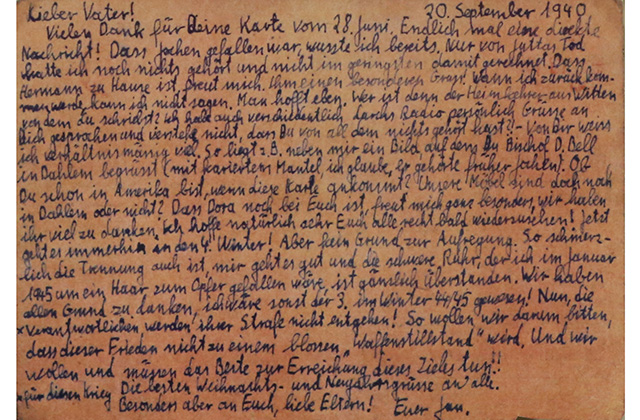 Lieber Vater! 20. September 1946
Vielen Dank für Deine Karte vom 28. Juni. Endlich mal eine direkte
Nachricht! Dass Jochen gefallen war, wusste ich bereits. Nur von Juttas Tod
hatte ich noch nichts gehört und nicht im geringsten damit gerechnet. Dass
Hermann zu Hause ist, freut mich. Ihm einen besonderen Gruss! Wann ich zurück kom-
men werde, kann ich nicht sagen. Man hofft eben. Wer ist denn der Heimkehrer aus Witten
von dem du schriebst? Ich habe auch verschiedentlich durchs Radio persönlich Grüsse an
Dich gesprochen und verstehe nicht, dass Du von all dem nichts gehört hast! - Von Dir weiss
ich verhältnismässig viel. So liegt z.B. neben mir ein Bild auf dem Du Bischof D. Bell
in Dahlem begrüsst (mit kariertem Mantel ich glaube, er gehörte früher Jochen). Ob
Du schon in Amerika bist, wenn diese Karte ankommt? Unsere Möbel sind doch noch
in Dahlem oder nicht? Dass Dora noch bei Euch ist, freut mich ganz besonders, wir haben
ihr viel zu danken. Ich hoffe natürlich sehr Euch alle recht bald wiederzusehen! Jetzt
geht es immerhin in den 4. Winter! Aber kein Grund zur Aufregung. So schmerz-
lich die Trennung auch ist, mir geht es gut und die schwere Ruhr, der ich im Januar
1945 um ein Haar zum Opfer gefallen wäre, ist gänzlich überstanden. Wir haben
allen Grund zu danken, ich wäre sonst der 3. im Winter 44/45 gewesen! Nun, die
x Verantwortlichen werden ihrer Strafe nicht entgehen! So wollen wir darum bitten,
dass dieser Frieden nicht zu einem blossen „Waffenstillstand" wird. Und wir
wollen und müssen das Beste zur Erreichung dieses Zieles tun!!
x für diesen Krieg Die besten Weihnachts- und Neujahrsgrüsse an alle.
Besonders aber an Euch, liebe Eltern! Euer Jan.